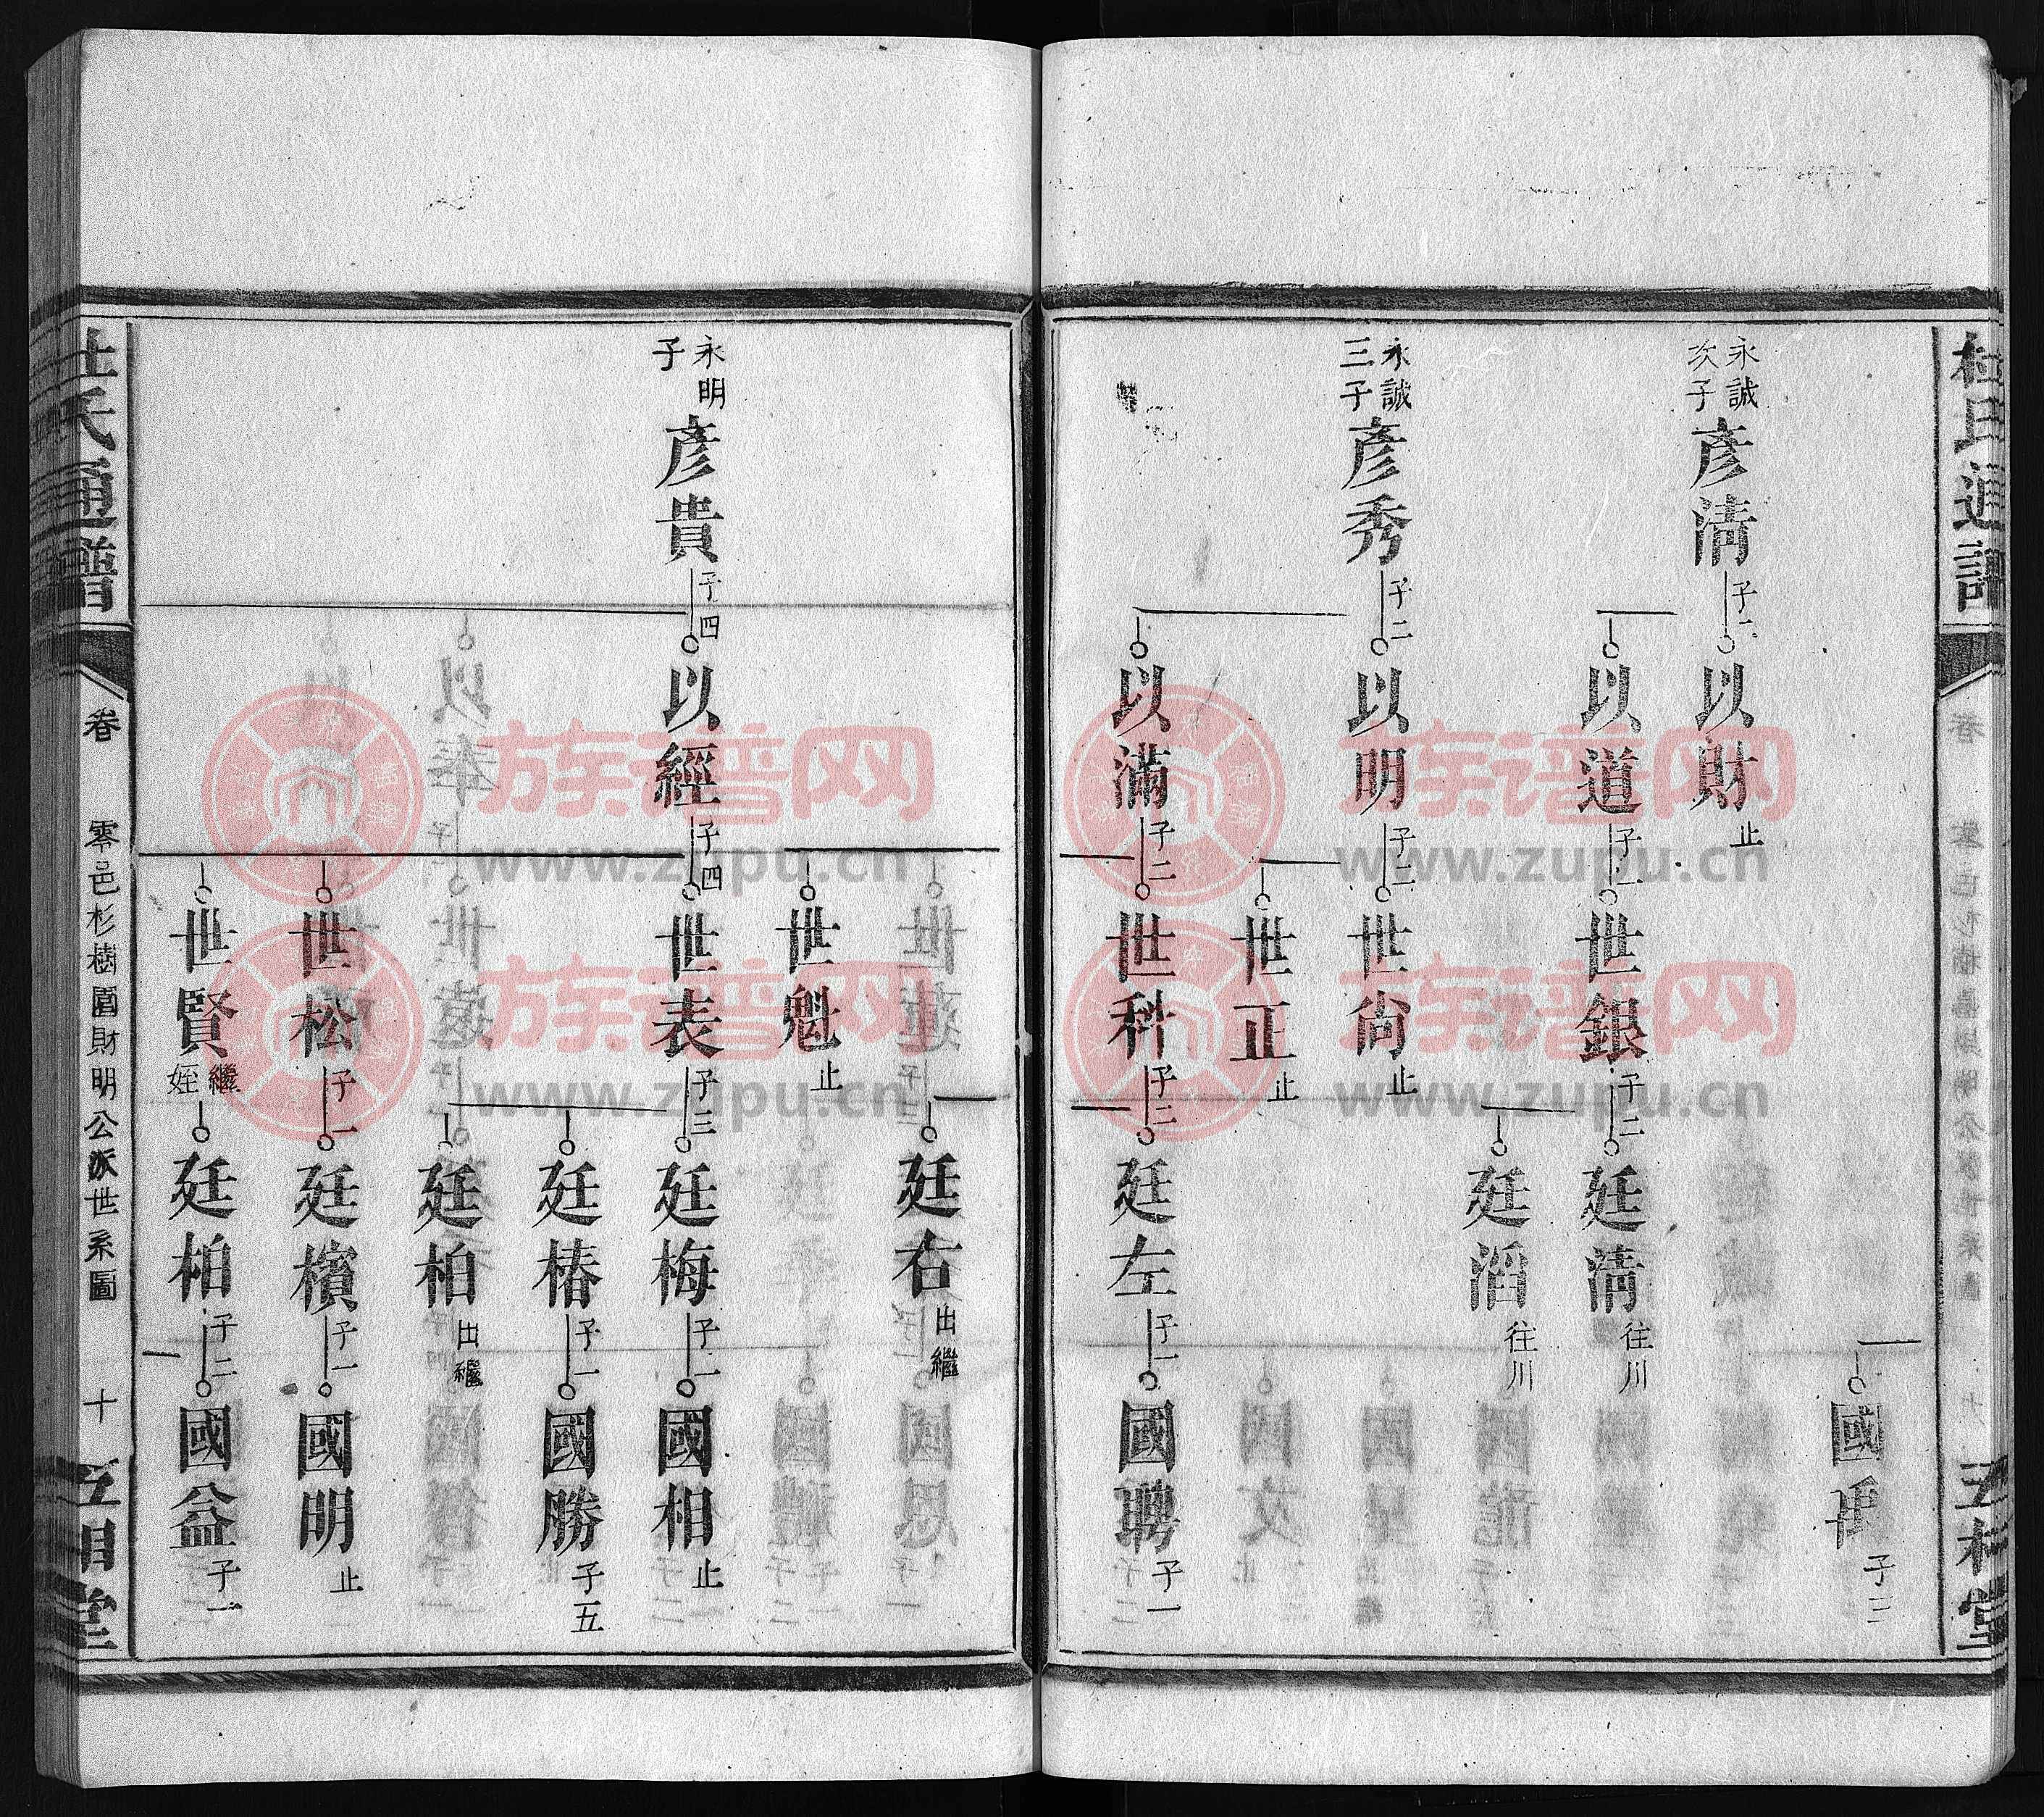 杜氏通譜
五桂堂
國禹 子三
永誠次子 彥清 子二
以財 止
以道 子一
世銀 子二
廷清 往川
廷滔 往川
永誠三子 彥秀 子二
以明 子二
世尙 止
世正 止
以滿 子二
世科 子二
廷左 子一
國聘 子一
廷右 出繼
世魁 止
永明子 彥貴 子四
以經 子四
世表 子三
廷梅 子一
國相 止
廷椿 子一
國勝 子五
廷柏 出繼
世松 子一
廷檳 子一
國明 止
世賢 繼姪
廷柏 子二
國益 子一
杜氏通譜
卷
零邑杉樹園財明公派世系圖
十
族谱网
www.zupu.cn
族谱网
www.zupu.cn
族谱网
www.zupu.cn
族谱网
www.zupu.cn